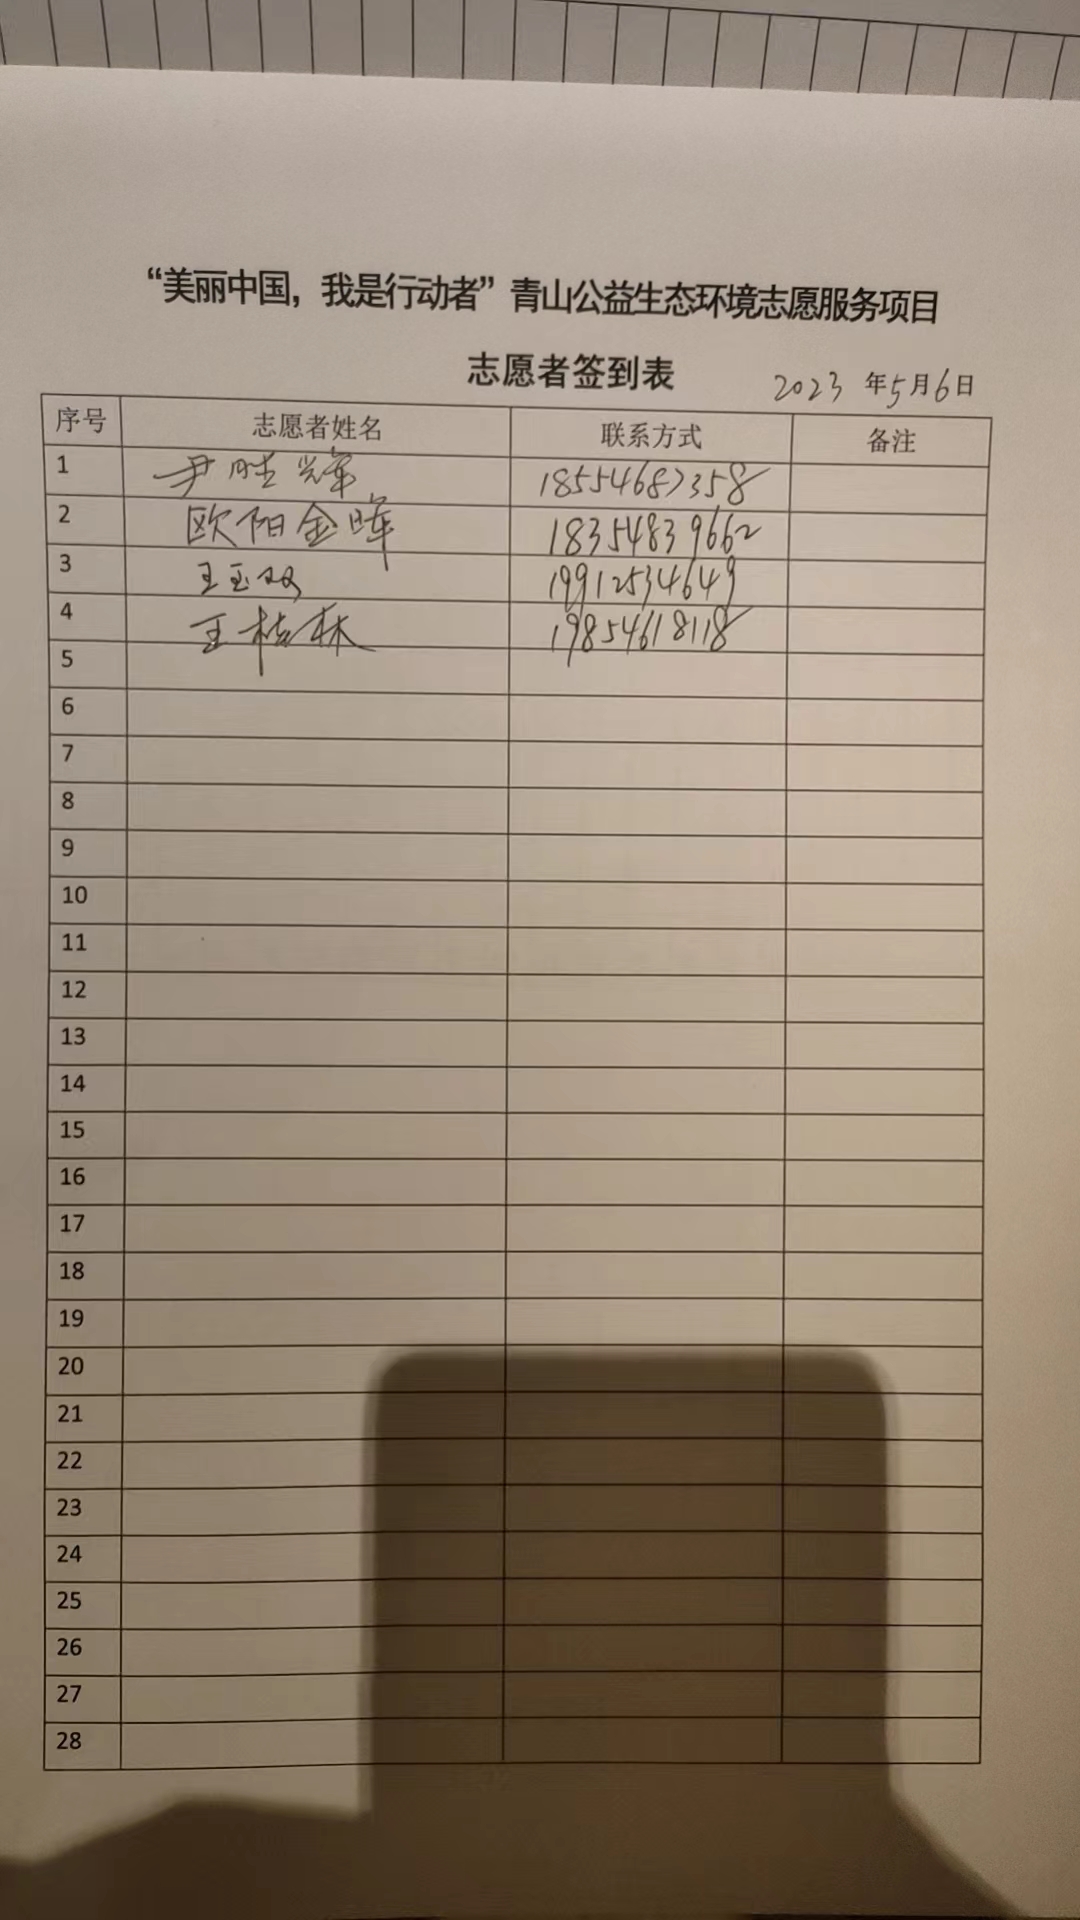 “美丽中国，我是行动者”青山公益生态环境志愿服务项目
志愿者签到表
2023 年5月6日
序号 志愿者姓名 联系方式 备注
1 尹胜辉 18554687358
2 欧阳金晖 18354839662
3 王玉双 19912534649
4 王桂林 19854618118
5
6
7
8
9
10
11
12
13
14
15
16
17
18
19
20
21
22
23
24
25
26
27
28